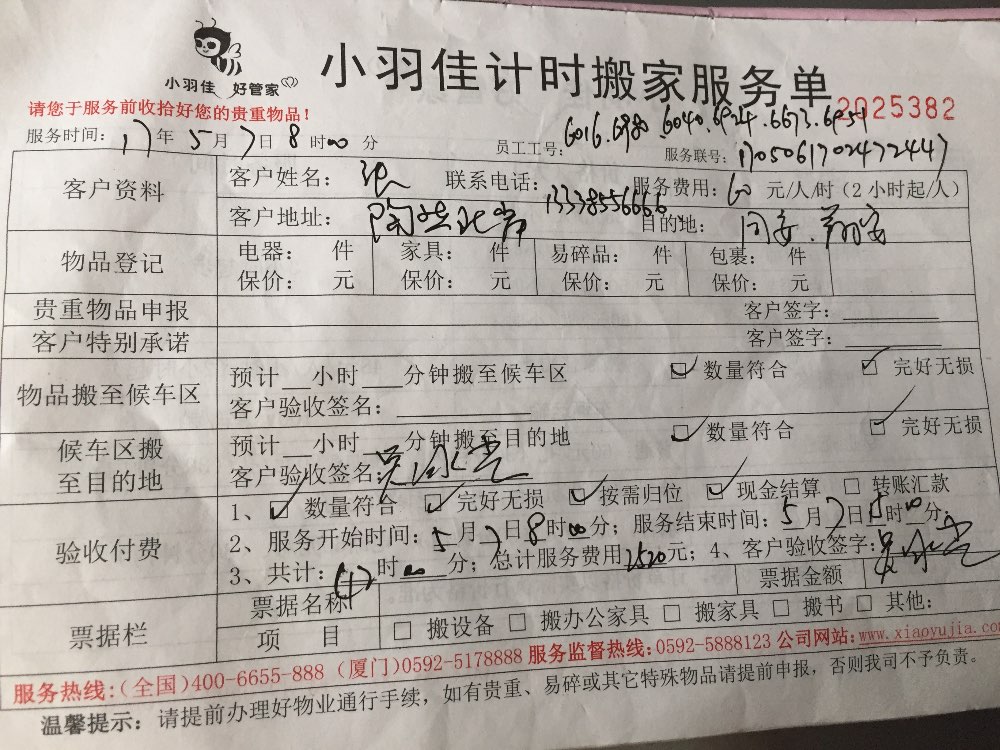 小羽佳 好管家
小羽佳计时搬家服务单
2025382
请您于服务前收拾好您的贵重物品！
服务时间：17年5月7日8时00分 员工工号：6016.6980.6040.6924.6673.6951
服务联号：170506170247244
客户资料 客户姓名：张 联系电话：13338556666 服务费用：60元/人/时（2小时起/人）
客户地址： 北岸 目的地：同安.翔安
物品登记 电器： 件 家具： 件 易碎品： 件 包裹： 件
保价： 元 保价： 元 保价： 元 保价： 元
贵重物品申报 客户签字：
客户特别承诺 客户签字：
物品搬至候车区 预计__小时___分钟搬至候车区 ☑ 数量符合 ☑ 完好无损
客户验收签名：
候车区搬至目的地 预计__小时___分钟搬至目的地 ☑ 数量符合 ☑ 完好无损
客户验收签名：
验收付费 1、☑ 数量符合 ☑ 完好无损 ☑ 按需归位 ☑ 现金结算 □ 转账汇款
2、服务开始时间：5月7日8时00分；服务结束时间：5月7日15时00分；
3、共计： 时00分；总计服务费用2520元；4、客户验收签字：
票据栏 票据名称 票据金额
项 目 □ 搬设备 □ 搬办公家具 □ 搬家具 □ 搬书 □ 其他：
服务热线：（全国）400-6655-888（厦门）0592-5178888 服务监督热线：0592-5888123 公司网站：www.xiaoyujia.com
温馨提示：请提前办理好物业通行手续，如有贵重、易碎或其它特殊物品请提前申报，否则我司不予负责。